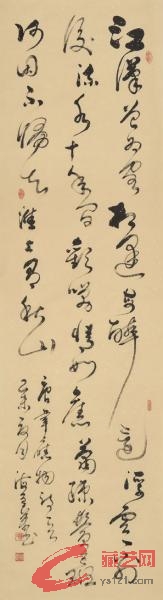 江漢曾為客相逢每醉還浮雲一別
後流水十年間歡笑情如舊蕭疏鬢已斑
何因不歸去淮上有秋山
唐韋應物詩
藏艺网
ys121.com